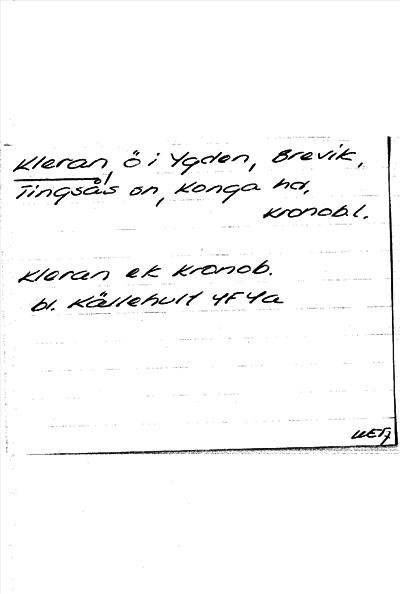 Kleran, ö i Ygden, Brevik,
Tingsås sn, Konga hd,
Kronob.l.
Kleran ek Kronob.
bl. Källehult 4F4a